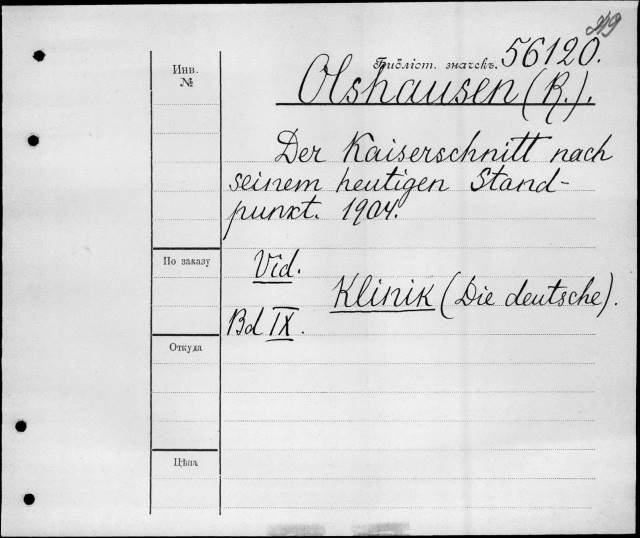 Библіот. значекъ. 56120.
Инв.
№
Olshausen (R.).
Der Kaiserschnitt nach
seinem heutigen Stand-
punkt. 1904.
По заказу
Vid.
Klinik (Die deutsche).
Bd IX.
Откуда
Цѣна